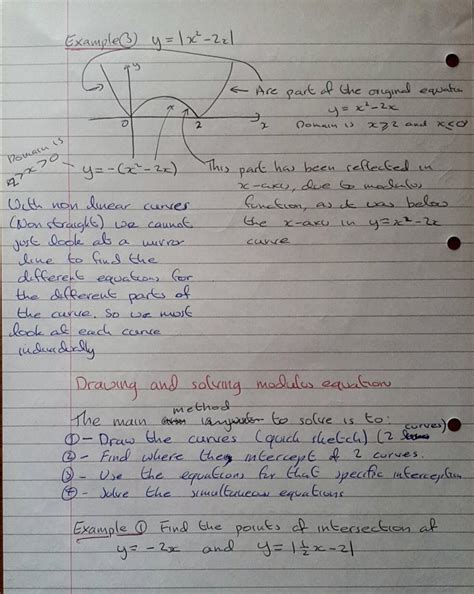 Example ③ y = |x² - 2x|
y
Are part of the original equation
y = x² - 2x
Domain is x ≥ 2 and x ≤ 0
0 2 x
Domain is
2 > x > 0
y = -(x² - 2x)
This part has been reflected in
x-axis, due to modulus
function, as it was below
the x-axis in y = x² - 2x
curve
With non linear curves
(Non straight) we cannot
just look at a mirror
line to find the
different equations for
the different parts of
the curve. So we must
look at each curve
individually
Drawing and solving modulus equation
The main method to solve is to:
① - Draw the curves (quick sketch) (2 curves)
② - Find where they intercept of 2 curves.
③ - Use the equations for that specific interception
④ - Solve the simultaneous equations
Example ① Find the points of intersection of
y = -2x and y = |½x - 2|